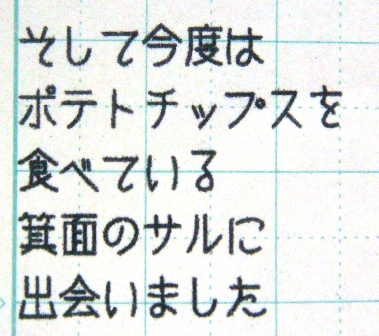 そして今度は
ポテトチップスを
食べている
箕面のサルに
出会いました